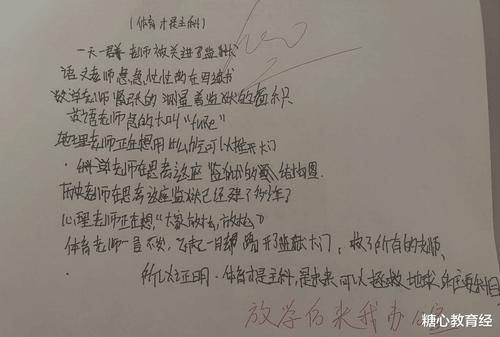 (体育才是主科)
一天一群老师被关进了监狱
语文老师急急忙忙的在写书
数学老师紧张的测量着监狱的面积
英语老师急的大叫"fuke"
地理老师正在想用什么能可以推开大门
老师在思考这座监狱的结构图
历史老师在思考这座监狱已经建了多少年了
心理老师正在想,"大家放过,放松"
体育老师一言不发,飞起一脚踢开了监狱大门,救了所有的老师、
所以证明,体育才是主科,是未来可以拯救地球的主要科目
放学后来我办公室
糖心教育经